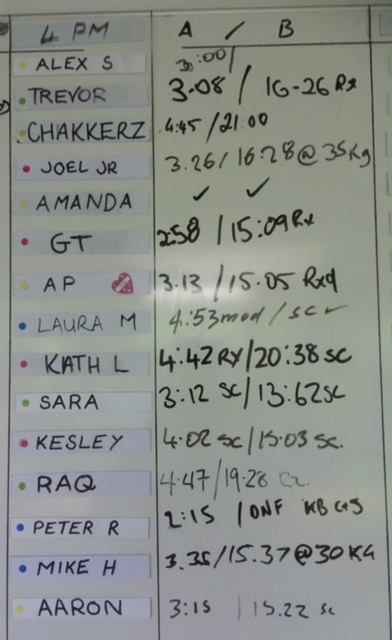 4 PM A / B
ALEX S 3:00/
TREVOR 3.08 / 16-26 Rx
CHAKKERZ 4:45 / 21:00
JOEL JR 3.26 / 16:28 @ 35Kg
AMANDA ✓ ✓
GT 2:58 / 15:09 Rx
AP 3.13 / 15.05 Rxd
LAURA M 4:53 mod / sc ✓
KATH L 4:42 RX / 20:38 SC
SARA 3:12 SC / 13:62 SC
KESLEY 4.02 SC / 15.03 SC.
RAQ 4.47 / 19.28
PETER R 2:15 / DNF KB
MIKE H 3.35 / 15.37 @ 30 KG
AARON 3:15 | 15.22 SC